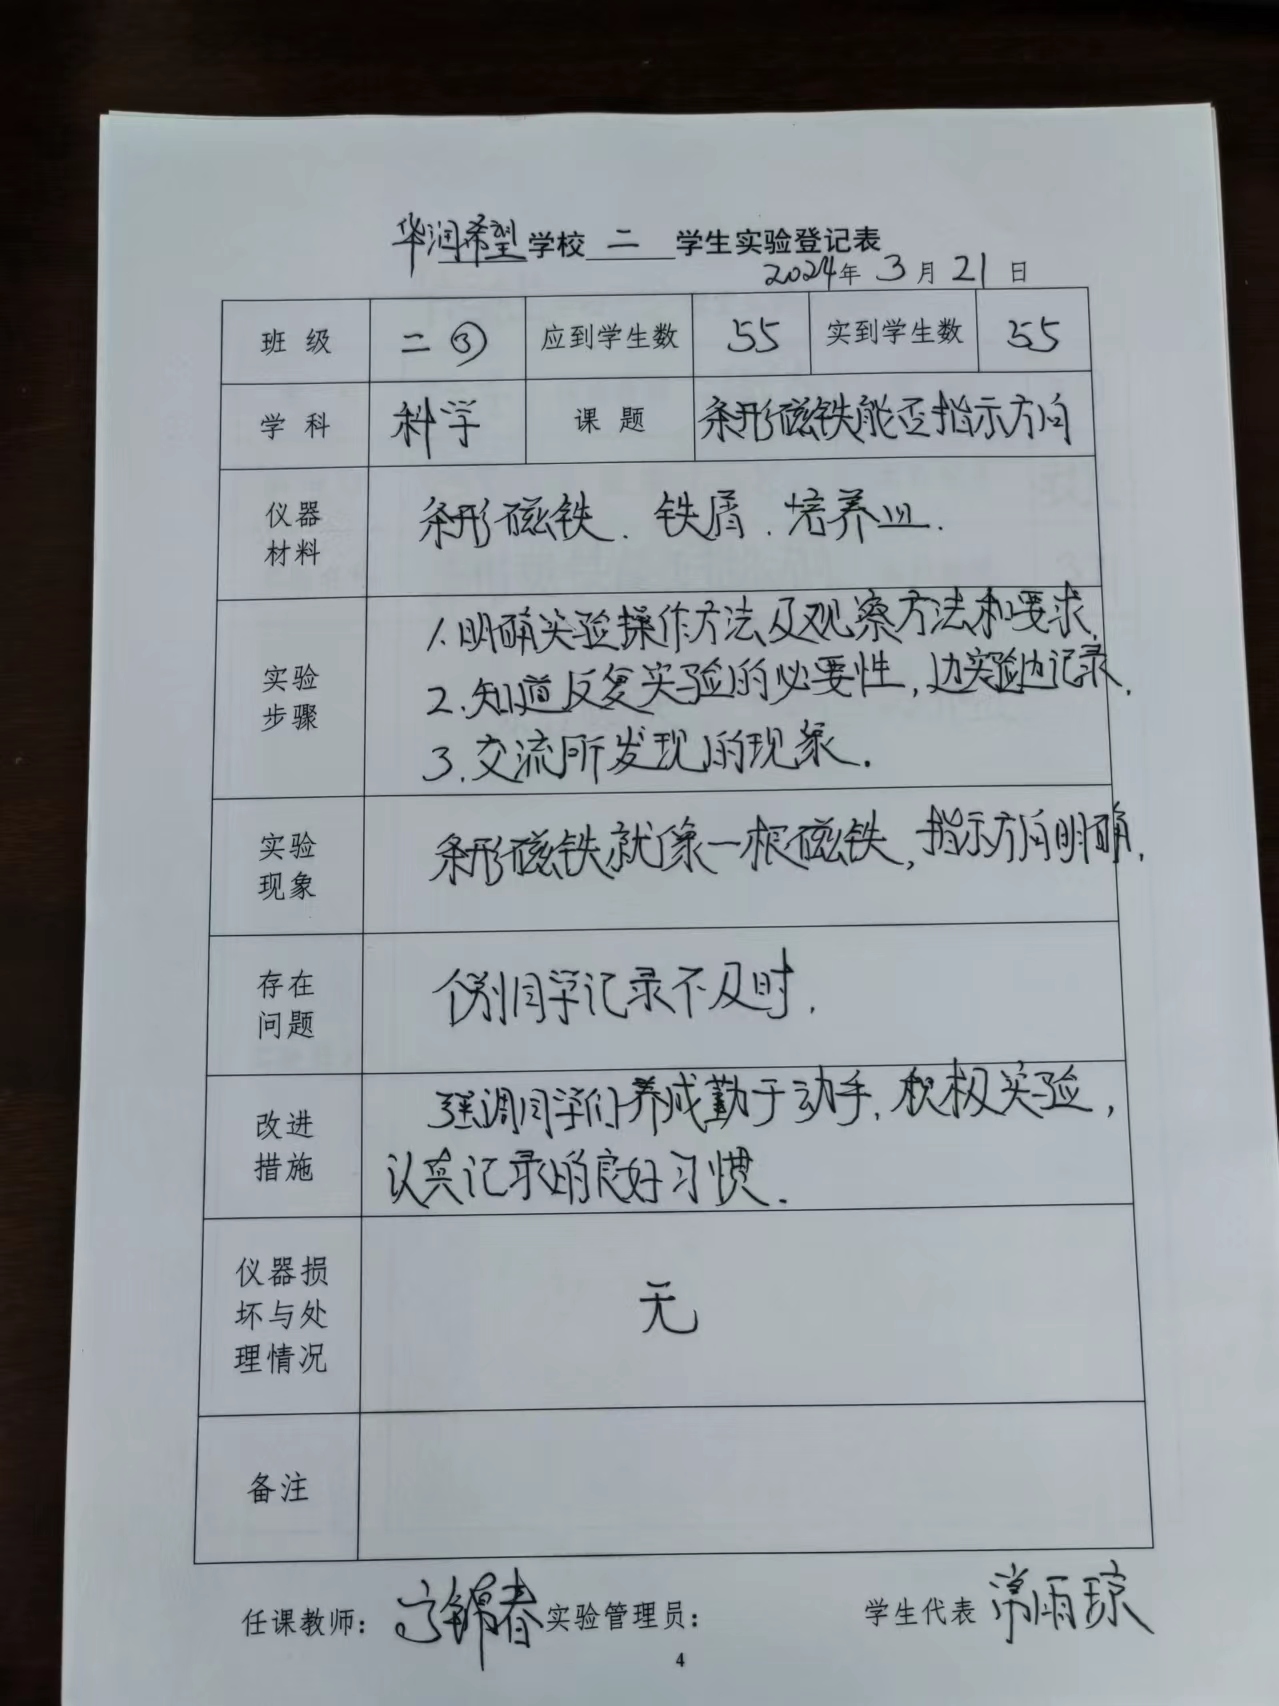 华润希望学校 二 学生实验登记表
2024年 3 月 21 日
班 级 二③ 应到学生数 55 实到学生数 55
学 科 科学 课 题 条形磁铁能否指示方向
仪器
材料
条形磁铁、铁屑、培养皿.
实验
步骤
1.明确实验操作方法及观察方法和要求.
2.知道反复实验的必要性,边实验边记录.
3.交流所发现的现象.
实验
现象
条形磁铁就像一根磁铁,指示方向明确.
存在
问题
个别同学记录不及时.
改进
措施
强调同学们养成勤于动手,积极实验,
认真记录的良好习惯.
仪器损
坏与处
理情况
无
备注
任课教师: 宁锦春 实验管理员: 学生代表 常雨琼
4